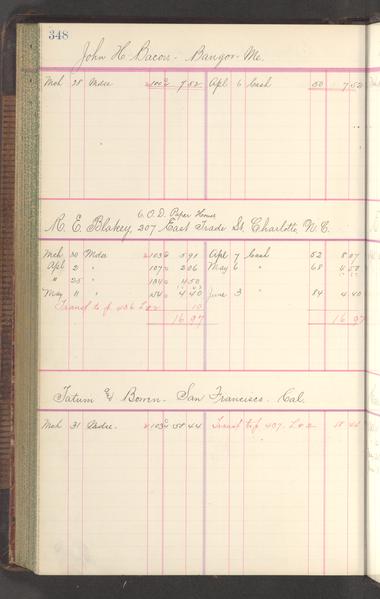 348
John H. Bacon - Bangor - Me.
Mch 28 Mdse 7.52 Apl 6 Cash 50 7.52
C.O.D. Paper House
R. E. Blakey, 207 East Trade St. Charlotte, N.C.
Mch 30 Mdse 103 5 91 Apl 7 Cash 52 8.07
Apl 2 " 107 2 06 May 6 " 68 4 50
" 25 " 4 50
May 11 " 4 40 June 3 " 84 4 40
Transf to p 436 L#2 10
16 97 16 97
Tatum & Bowen - San Francisco - Cal.
Mch 31 103 58 44 Transf to p 437 L#2 58 44